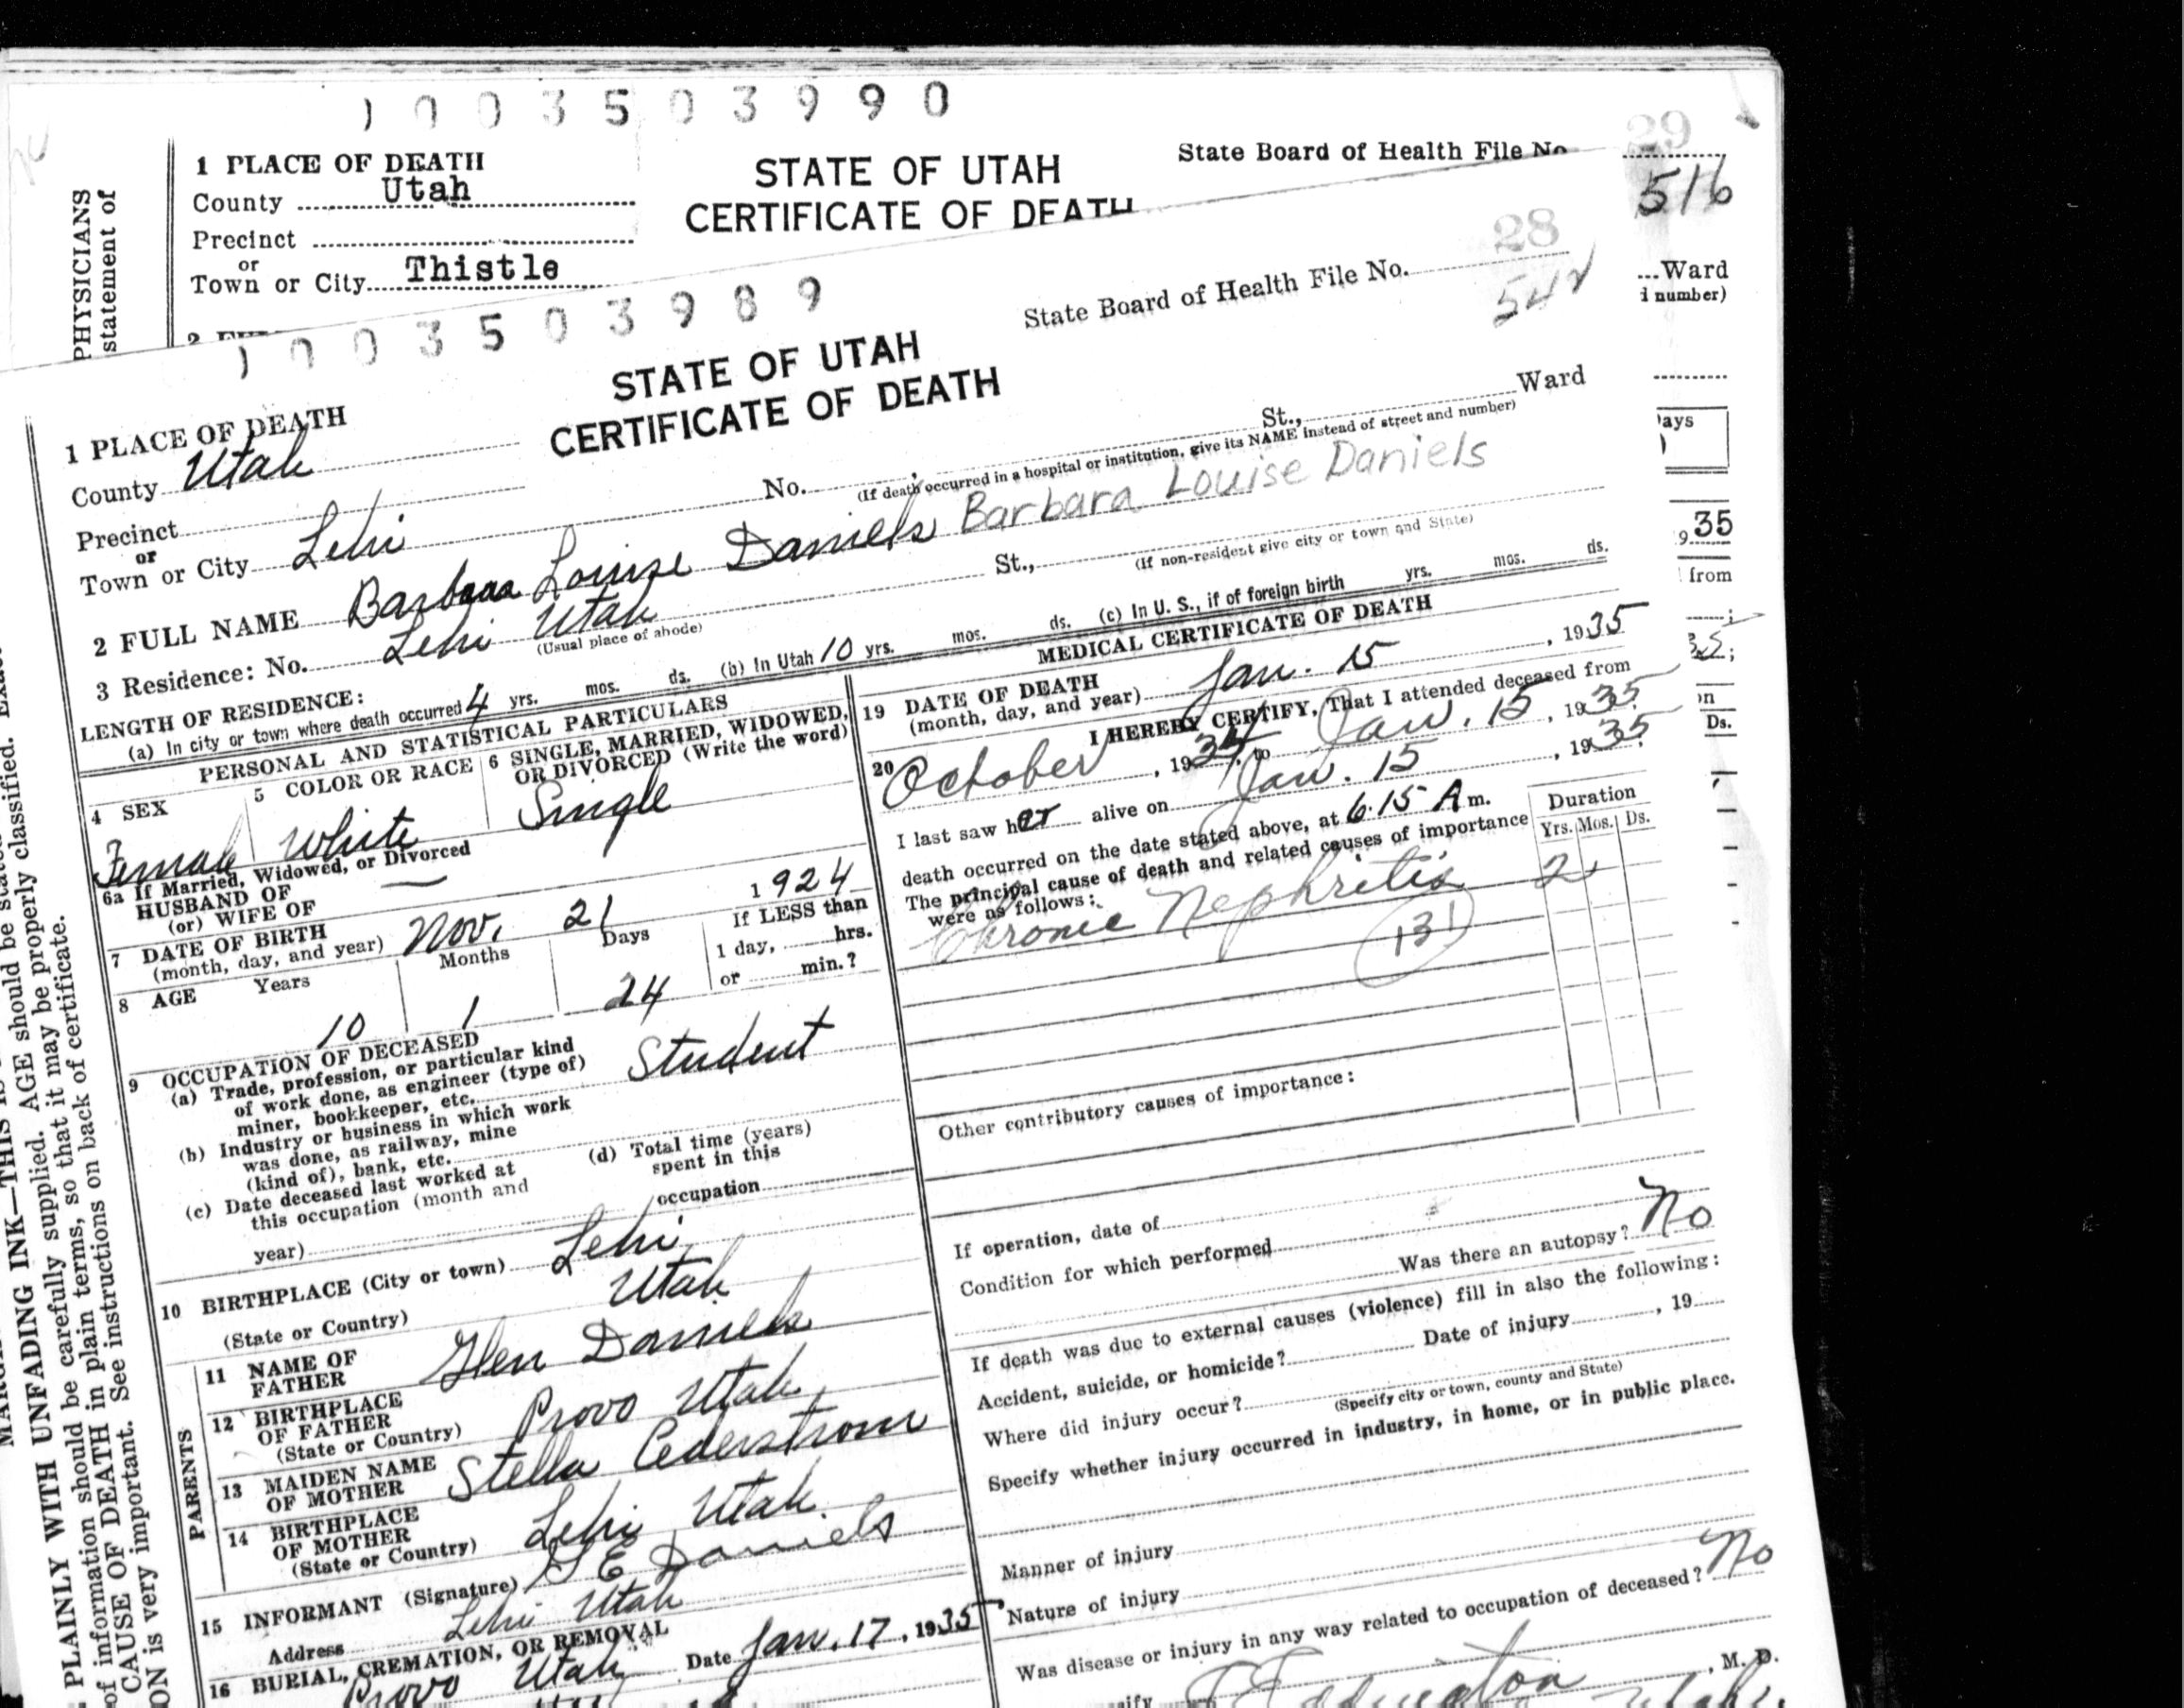 1003503990
1 PLACE OF DEATH
County Utah
Precinct
or
Town or City Thistle
STATE OF UTAH
CERTIFICATE OF DEATH
State Board of Health File No.
29
516
...Ward
i number)
ays
9 35
from
35;
on
Ds.
PHYSICIANS
statement of
1003503989
STATE OF UTAH
CERTIFICATE OF DEATH
State Board of Health File No. 28
542
1 PLACE OF DEATH
County Utah
Precinct
or
Town or City Lehi
No. St., Ward
(If death occurred in a hospital or institution, give its NAME instead of street and number)
2 FULL NAME Barbara Louise Daniels Barbara Louise Daniels
3 Residence: No. Lehi Utah St.,
(Usual place of abode)
(If non-resident give city or town and State)
LENGTH OF RESIDENCE:
(a) In city or town where death occurred 4 yrs. mos. ds. (b) In Utah 10 yrs. mos. ds. (c) In U. S., if of foreign birth yrs. mos. ds.
PERSONAL AND STATISTICAL PARTICULARS
4 SEX
Female
5 COLOR OR RACE
White
6 SINGLE, MARRIED, WIDOWED,
OR DIVORCED (Write the word)
Single
6a If Married, Widowed, or Divorced
HUSBAND OF
(or) WIFE OF
7 DATE OF BIRTH
(month, day, and year) Nov. 21 1924
8 AGE Years Months Days
10 1 24
If LESS than
1 day, hrs.
or min.?
9 OCCUPATION OF DECEASED
(a) Trade, profession, or particular kind
of work done, as engineer (type of)
miner, bookkeeper, etc. Student
(b) Industry or business in which work
was done, as railway, mine
(kind of), bank, etc.
(c) Date deceased last worked at
this occupation (month and
year)
(d) Total time (years)
spent in this
occupation
10 BIRTHPLACE (City or town) Lehi
(State or Country) Utah
PARENTS
11 NAME OF
FATHER Glen Daniels
12 BIRTHPLACE
OF FATHER
(State or Country) Provo Utah
13 MAIDEN NAME
OF MOTHER Stella Cederstrom
14 BIRTHPLACE
OF MOTHER
(State or Country) Lehi Utah
15 INFORMANT (Signature) G E Daniels
Address Lehi Utah
16 BURIAL, CREMATION, OR REMOVAL
Provo Utah Date Jan. 17, 1935
MEDICAL CERTIFICATE OF DEATH
19 DATE OF DEATH
(month, day, and year) Jan. 15, 1935
20 I HEREBY CERTIFY, That I attended deceased from
October, 1934, to Jan. 15, 1935
I last saw her alive on Jan. 15, 1935
death occurred on the date stated above, at 6.15 A m.
The principal cause of death and related causes of importance
were as follows:
Duration
Yrs. Mos. Ds.
Chronic Nephritis 2
131
Other contributory causes of importance:
If operation, date of
Condition for which performed
Was there an autopsy? No
If death was due to external causes (violence) fill in also the following:
Accident, suicide, or homicide? Date of injury, 19
Where did injury occur?
(Specify city or town, county and State)
Specify whether injury occurred in industry, in home, or in public place.
Manner of injury
Nature of injury
Was disease or injury in any way related to occupation of deceased? No
Eddington, M. D.
PLAINLY WITH UNFADING INK—THIS IS
of information should be carefully supplied. AGE should be stated
CAUSE OF DEATH in plain terms, so that it may be properly classified.
ON is very important. See instructions on back of certificate.